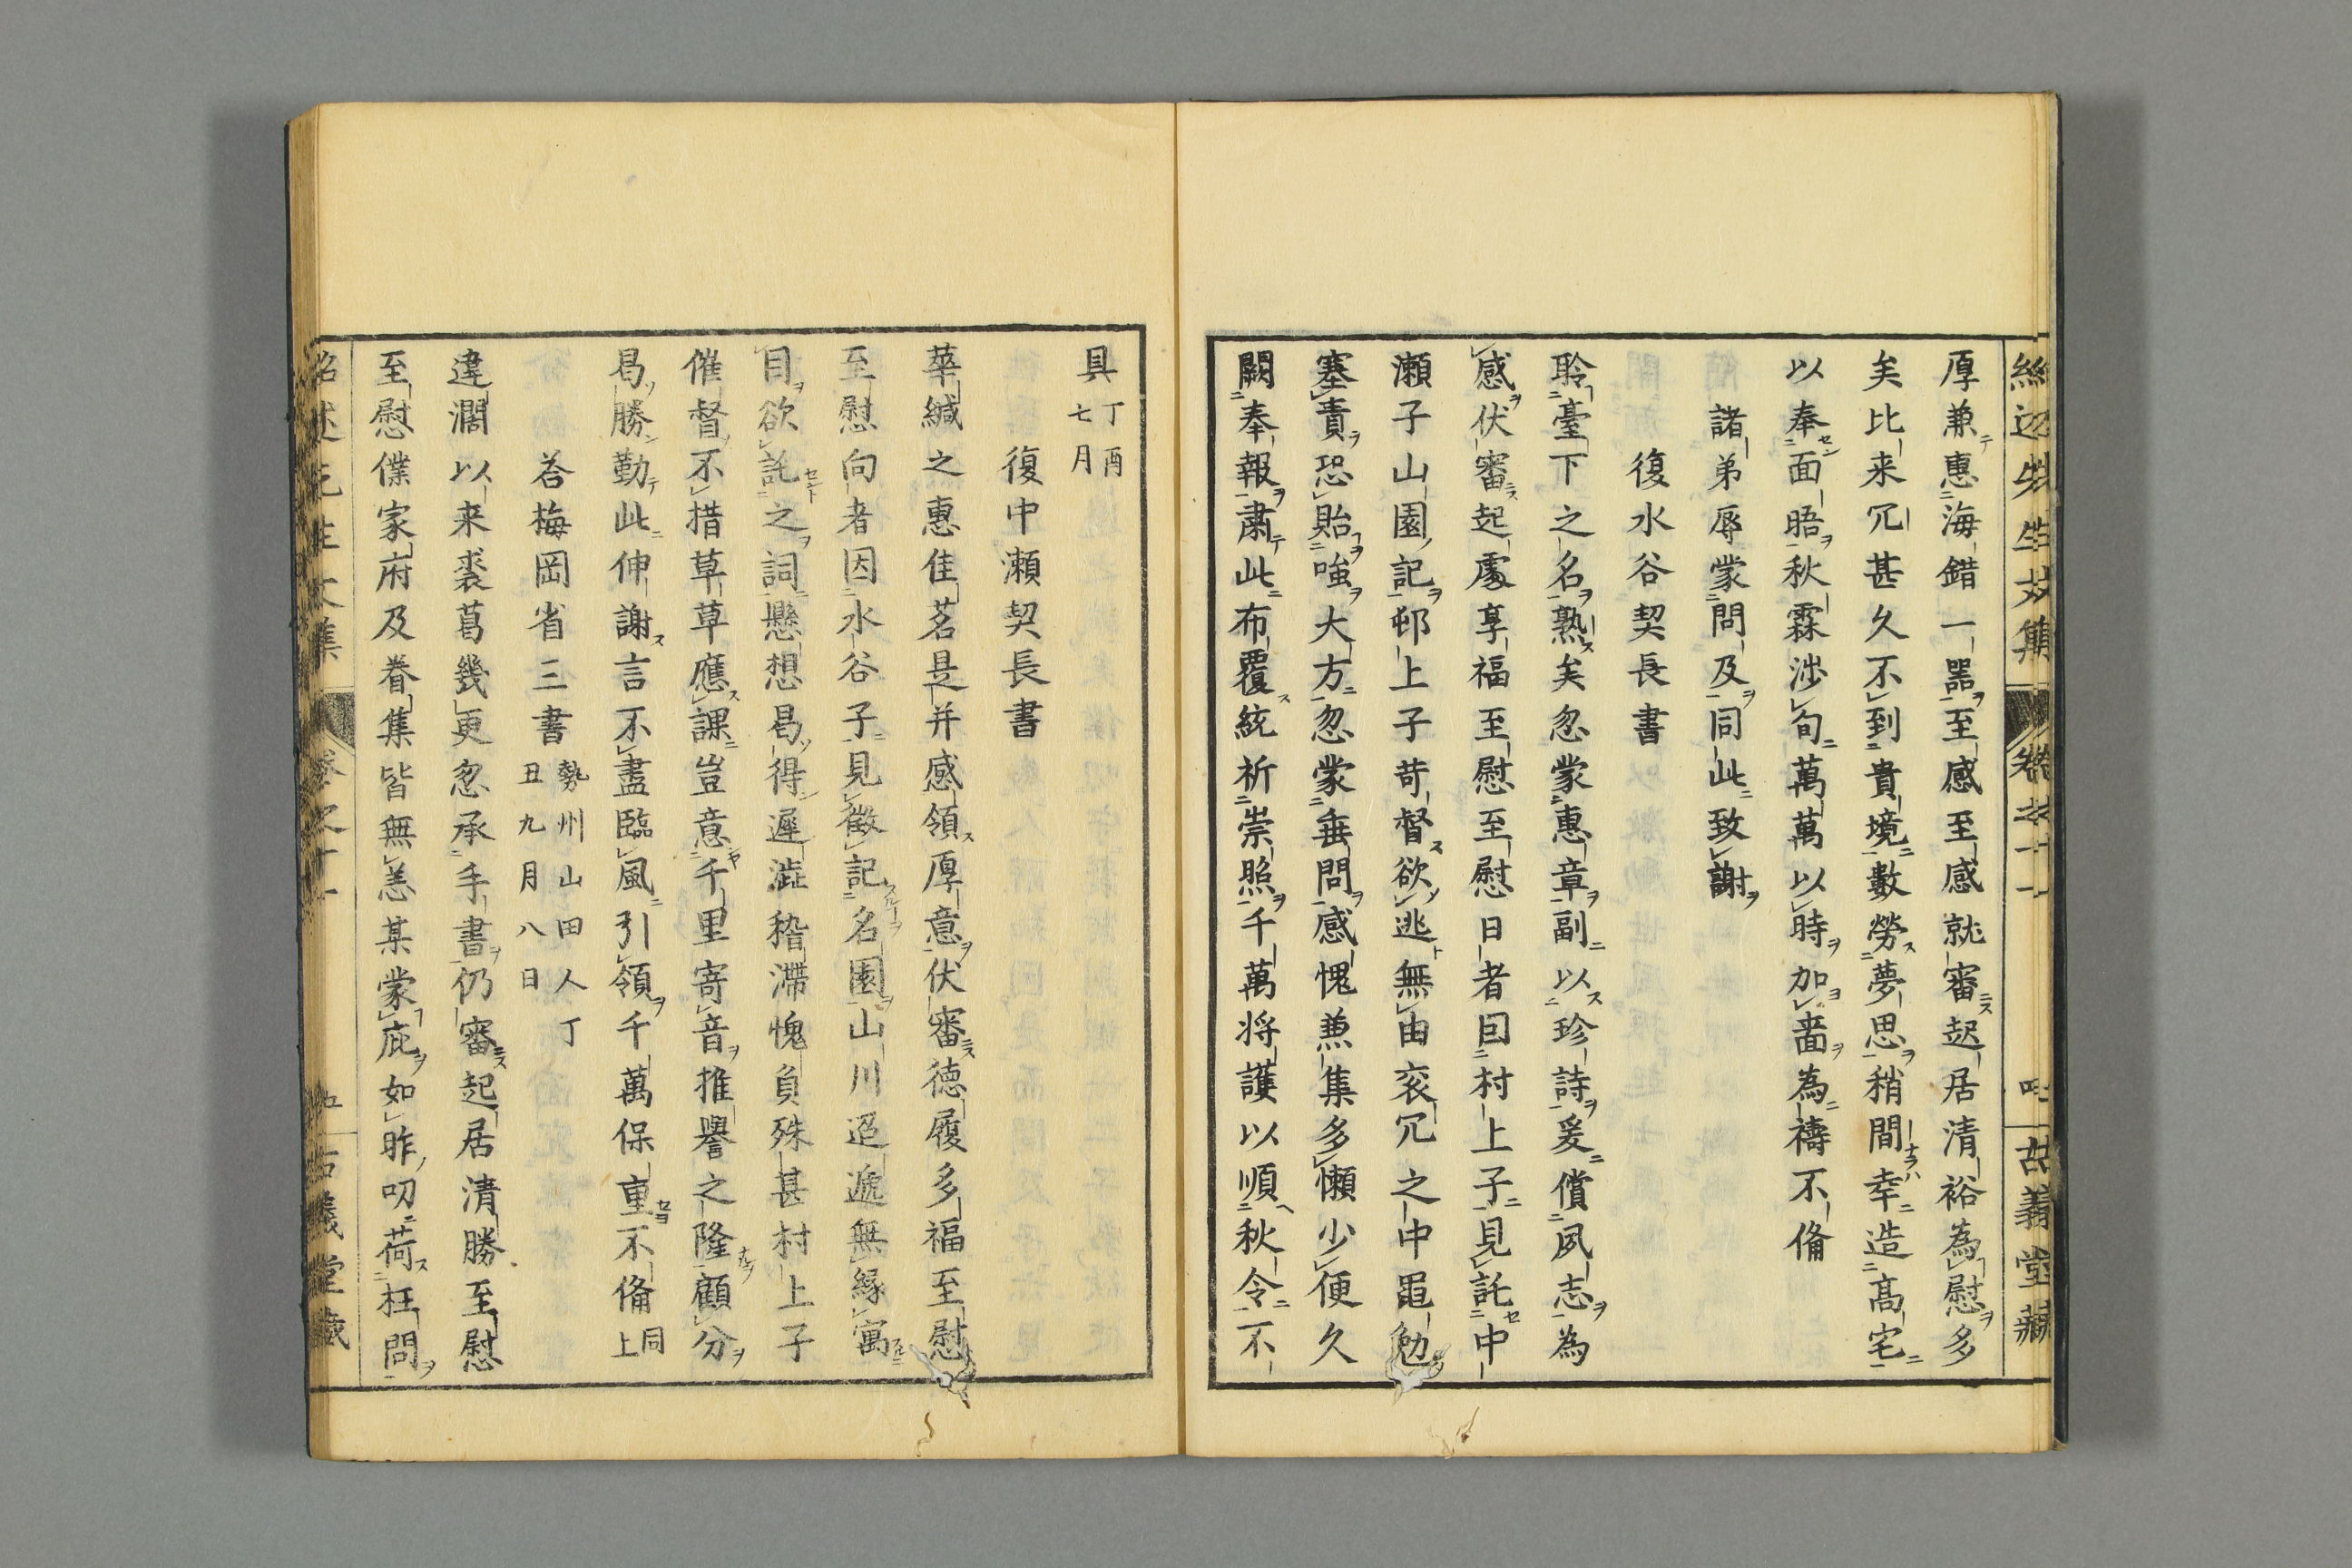 紹述先生文集 卷之十一 古義堂藏
厚兼惠海錯一器至感至感就審起居清裕為慰多
矣比来冗甚久不到貴境數勞夢思稍間幸造髙宅
以奉面晤秋霖渉旬萬萬以時加嗇為禱不俻
諸弟辱蒙問及同此致謝
復水谷契長書
聆臺下之名熟矣忽蒙惠章副以珍詩爰償夙志為
感伏審起處享福至慰至慰日者囙村上子見託中
瀬子山園記邨上子苛督欲逃無由衮冗之中黽勉
塞責恐貽嗤大方忽蒙垂問感愧兼集多懶少便久
闕奉報肅此布覆統祈崇照千萬将護以順秋令不
具 丁酉七月
復中瀬契長書
華緘之惠佳茗是并感領厚意伏審德履多福至慰
至慰向者因水谷子見徵記名園山川迢遞無縁寓
目欲託之詞懸想曷得遲澁稽滯愧負殊甚村上子
催督不措草草應課豈意千里寄音推譽之隆顧分
曷勝勤此伸謝言不盡臨風引領千萬保重不俻 同上
荅梅岡省三書 勢州山田人丁丑九月八日
違濶以来裘葛幾更忽承手書仍審起居清勝至慰
至慰僕家府及眷集皆無恙某蒙庇如昨叨荷枉問
紹述先生文集 卷之十一 五 古義堂藏